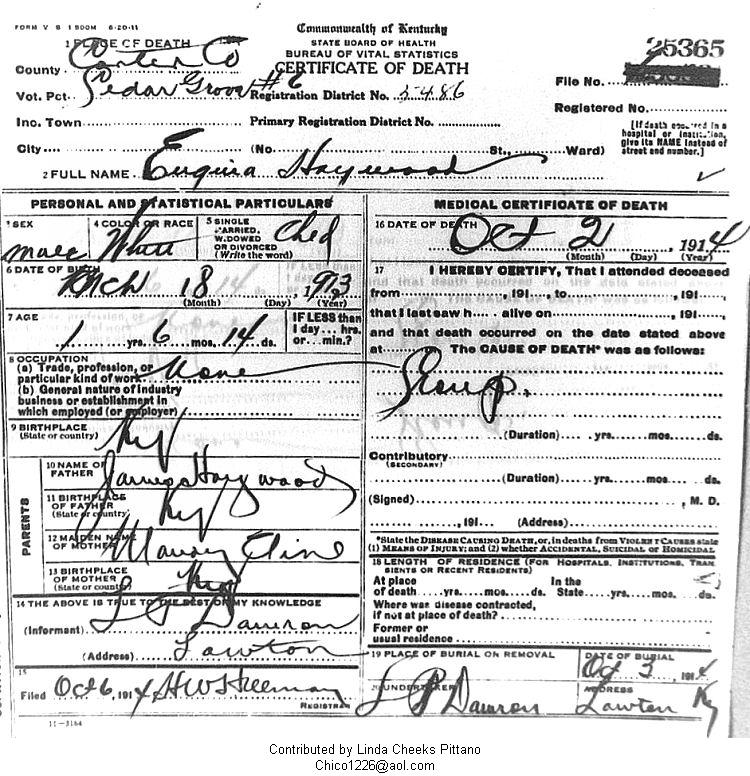 FORM V S 1 500M 6-20-11
Commonwealth of Kentucky
STATE BOARD OF HEALTH
BUREAU OF VITAL STATISTICS
CERTIFICATE OF DEATH
1 PLACE OF DEATH
County Carter Co
Vot. Pct. # 6
Registration District No. 5486
25365
File No.
Inc. Town
Primary Registration District No.
Registered No.
City (No. St., Ward)
[If death occurred in a
hospital or institution,
give its NAME instead of
street and number.]
2 FULL NAME Haywood
PERSONAL AND STATISTICAL PARTICULARS
3 SEX
male
4 COLOR OR RACE
White
5 SINGLE
MARRIED,
WIDOWED
OR DIVORCED
(Write the word)
6 DATE OF BIRTH
Mch 18 1913
(Month) (Day) (Year)
7 AGE
1 yrs. 6 mos. 14 ds.
IF LESS than
1 day... hrs.
or... min.?
8 OCCUPATION
(a) Trade, profession, or
particular kind of work None
(b) General nature of industry
business or establishment in
which employed (or employer)
9 BIRTHPLACE
(State or country) Ky
PARENTS
10 NAME OF
FATHER James Haywood
11 BIRTHPLACE
OF FATHER
(State or country) Ky
12 MAIDEN NAME
OF MOTHER
13 BIRTHPLACE
OF MOTHER
(State or country) Ky
14 THE ABOVE IS TRUE TO THE BEST OF MY KNOWLEDGE
(Informant) L P Damron
(Address) Lawton
15
Filed Oct 6, 1914
REGISTRAR
11-3164
MEDICAL CERTIFICATE OF DEATH
16 DATE OF DEATH
Oct 2, 1914
(Month) (Day) (Year)
17 I HEREBY CERTIFY, That I attended deceased
from , 191 , to , 191 ,
that I last saw h alive on , 191 ,
and that death occurred on the date stated above
at The CAUSE OF DEATH* was as follows:
Croup.
(Duration) yrs. mos. ds.
Contributory
(SECONDARY)
(Duration) yrs. mos. ds.
(Signed) , M. D.
, 191 (Address)
*State the DISEASE CAUSING DEATH, or, in deaths from VIOLENT CAUSES state
(1) MEANS OF INJURY; and (2) whether ACCIDENTAL, SUICIDAL or HOMICIDAL
18 LENGTH OF RESIDENCE (FOR HOSPITALS, INSTITUTIONS, TRAN
SIENTS OR RECENT RESIDENTS)
At place In the
of death yrs. mos. ds. State yrs. mos. ds.
Where was disease contracted,
if not at place of death?
Former or
usual residence
19 PLACE OF BURIAL OR REMOVAL
DATE OF BURIAL
Oct 3 1914
20 UNDERTAKER
L P Damron
ADDRESS
Lawton Ky
Contributed by Linda Cheeks Pittano
Chico1226@aol.com